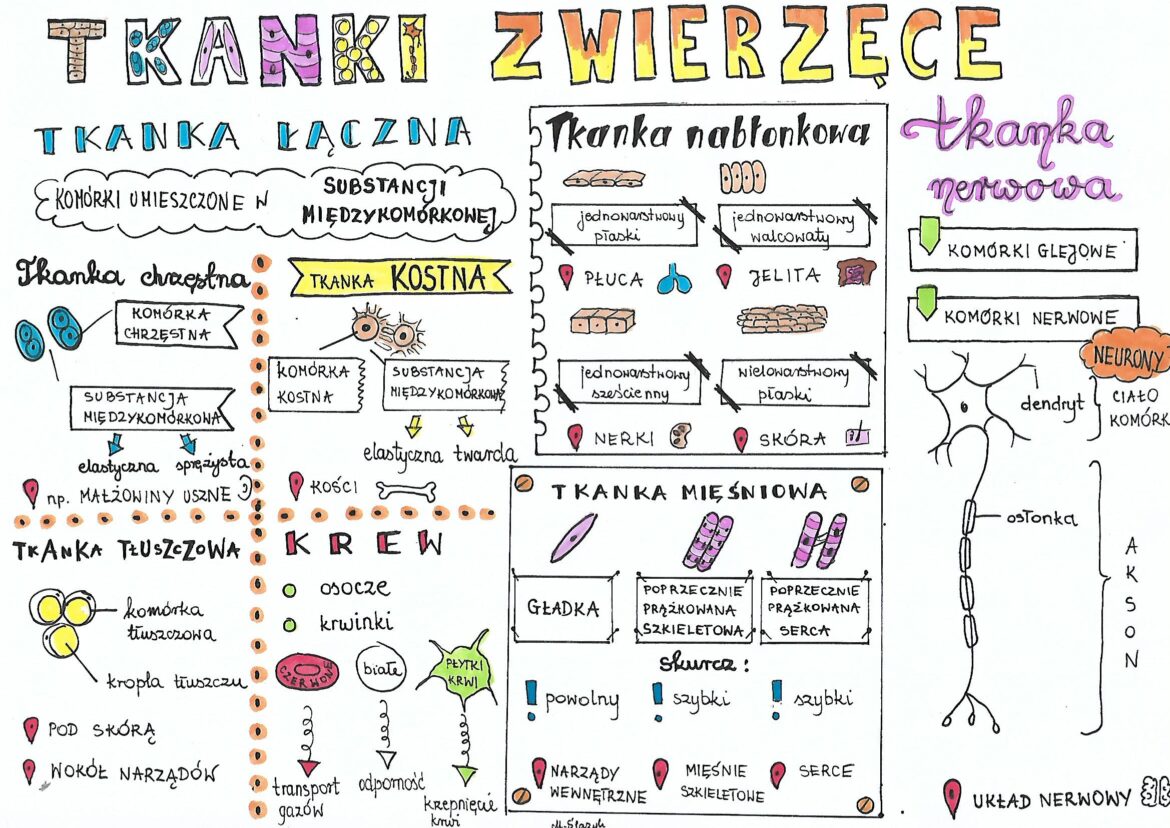 TKANKI ZWIERZĘCE
TKANKA ŁĄCZNA
KOMÓRKI UMIESZCZONE W SUBSTANCJI
MIĘDZYKOMÓRKOWEJ
Tkanka chrzęstna
KOMÓRKA
CHRZĘSTNA
SUBSTANCJA
MIĘDZYKOMÓRKOWA
elastyczna sprężysta
np. MAŁŻOWINY USZNE
TKANKA KOSTNA
KOMÓRKA
KOSTNA
SUBSTANCJA
MIĘDZYKOMÓRKOWA
elastyczna twarda
KOŚCI
TKANKA TŁUSZCZOWA
komórka
tłuszczowa
kropla tłuszczu
POD SKÓRĄ
WOKÓŁ NARZĄDÓW
KREW
osocze
krwinki
CZERWONE
białe
PŁYTKI
KRWI
transport
gazów
odporność
krzepnięcie
krwi
Tkanka nabłonkowa
jednowarstwowy
płaski
jednowarstwowy
walcowaty
PŁUCA
JELITA
jednowarstwowy
sześcienny
wielowarstwowy
płaski
NERKI
SKÓRA
TKANKA MIĘŚNIOWA
GŁADKA
POPRZECZNIE
PRĄŻKOWANA
SZKIELETOWA
POPRZECZNIE
PRĄŻKOWANA
SERCA
skurcz:
powolny
szybki
szybki
NARZĄDY
WEWNĘTRZNE
MIĘŚNIE
SZKIELETOWE
SERCE
tkanka
nerwowa
KOMÓRKI GLEJOWE
KOMÓRKI NERWOWE
NEURONY
dendryt
CIAŁO
KOMÓRK
osłonka
AKSON
UKŁAD NERWOWY